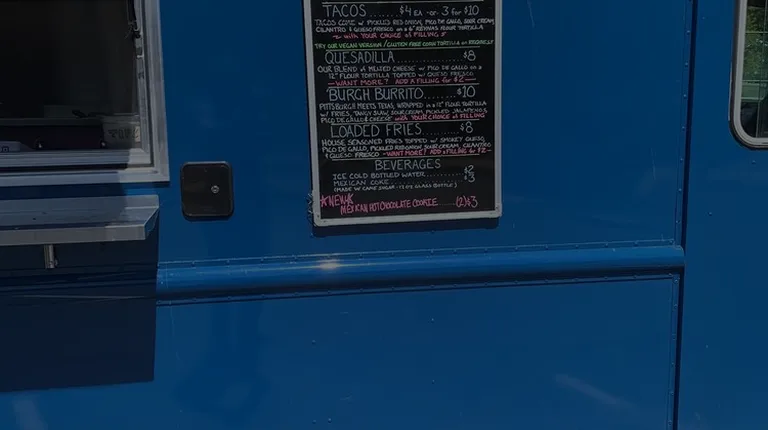 TACOS........ $4 EA -OR- 3 FOR $10
TACOS COME W/ PICKLED RED ONION, PICO DE GALLO, SOUR CREAM,
CILANTRO & QUESO FRESCO ON A 6" FLOUR TORTILLA
WITH YOUR CHOICE OF FILLING
TRY OUR VEGAN VERSION / GLUTEN FREE CORN TORTILLA BY REQUEST
QUESADILLA............$8
OUR BLEND OF MELTED CHEESE W/ PICO DE GALLO IN A
12" FLOUR TORTILLA TOPPED W/ QUESO FRESCO
-WANT MORE? ADD A FILLING FOR $2-
BURGH BURRITO........$10
PITTSBURGH MEETS TEXAS, WRAPPED IN A 12" FLOUR TORTILLA
W/ FRIES, TANGY SLAW, SOUR CREAM, PICKLED JALAPEÑOS,
PICO DE GALLO & CHEESE WITH YOUR CHOICE OF FILLING
LOADED FRIES.........$8
HOUSE SEASONED FRIES TOPPED W/ SMOKEY QUESO,
PICO DE GALLO, PICKLED RED ONION, SOUR CREAM, CILANTRO
& QUESO FRESCO -WANT MORE? ADD A FILLING FOR $2-
BEVERAGES
ICE COLD BOTTLED WATER........$2
MEXICAN COKE..............$3
(MADE W/ CANE SUGAR - 12 OZ GLASS BOTTLE)
*NEW*
MEXICAN HOT CHOCOLATE COOKIE.......(2)$3